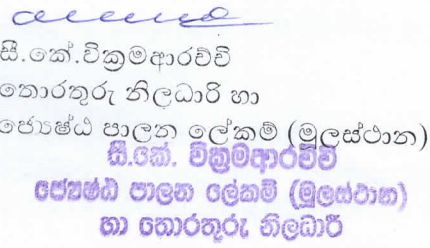 සී.කේ.වික්‍රමආරච්චි
තොරතුරු නිලධාරි හා
ජ්‍යෙෂ්ඨ පාලන ලේකම් (මූලස්ථාන)
සී.කේ. වික්‍රමආරච්චි
ජ්‍යෙෂ්ඨ පාලන ලේකම් (මූලස්ථාන)
හා තොරතුරු නිලධාරී